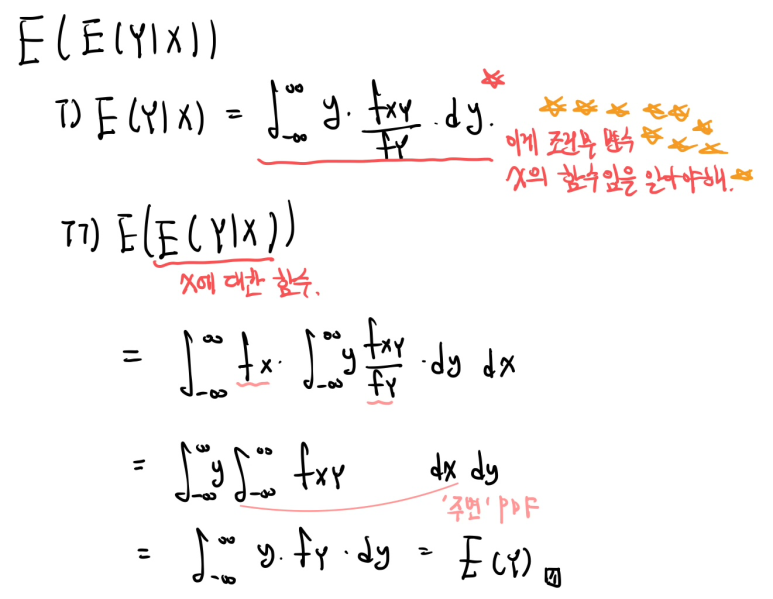 E(E(Y|X))
i) E(Y|X) = ∫_{-∞}^{∞} y · \frac{f_{XY}}{f_Y} · dy.
이게 조건부 변수
X의 함수임을 알아야해.
ii) E(E(Y|X))
X에 대한 함수.
= ∫_{-∞}^{∞} f_X · ∫_{-∞}^{∞} y \frac{f_{XY}}{f_Y} · dy dx
= ∫_{-∞}^{∞} y ∫_{-∞}^{∞} f_{XY} dx dy
'주변' PDF
= ∫_{-∞}^{∞} y · f_Y · dy = E(Y)